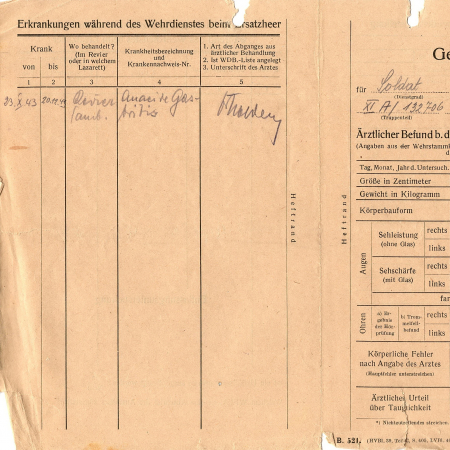 Erkrankungen während des Wehrdienstes beim Ersatzheer
Krank
von bis
Wo behandelt?
(Im Revier
oder in welchem
Lazarett)
Krankheitsbezeichnung
und
Krankennachweis-Nr.
1. Art des Abganges aus
ärztlicher Behandlung
2. Ist WDB.-Liste angelegt
3. Unterschrift des Arztes
1 2 3 4 5
Revier
amb.
Anacide Gas-
tritis
Heftrand
Heftrand
Ge
für Soldat
(Dienstgrad)
XI A/132706
(Truppenteil)
Ärztlicher Befund b. d
(Angaben aus der Wehrstamm
Tag, Monat, Jahr d. Untersuch.
Größe in Zentimeter
Gewicht in Kilogramm
Körperbauform
Augen
Sehleistung
(ohne Glas)
rechts
links
Sehschärfe
(mit Glas)
rechts
links
far
Ohren
a) Er-
gebnis
der Hör-
prüfung
b) Trom-
melfell-
befund
rechts
links
Körperliche Fehler
nach Angabe des Arztes
(Hauptfehler unterstreichen)
Ärztliches Urteil
über Tauglichkeit
*) Nichtzutreffendes streichen.
B. 521.